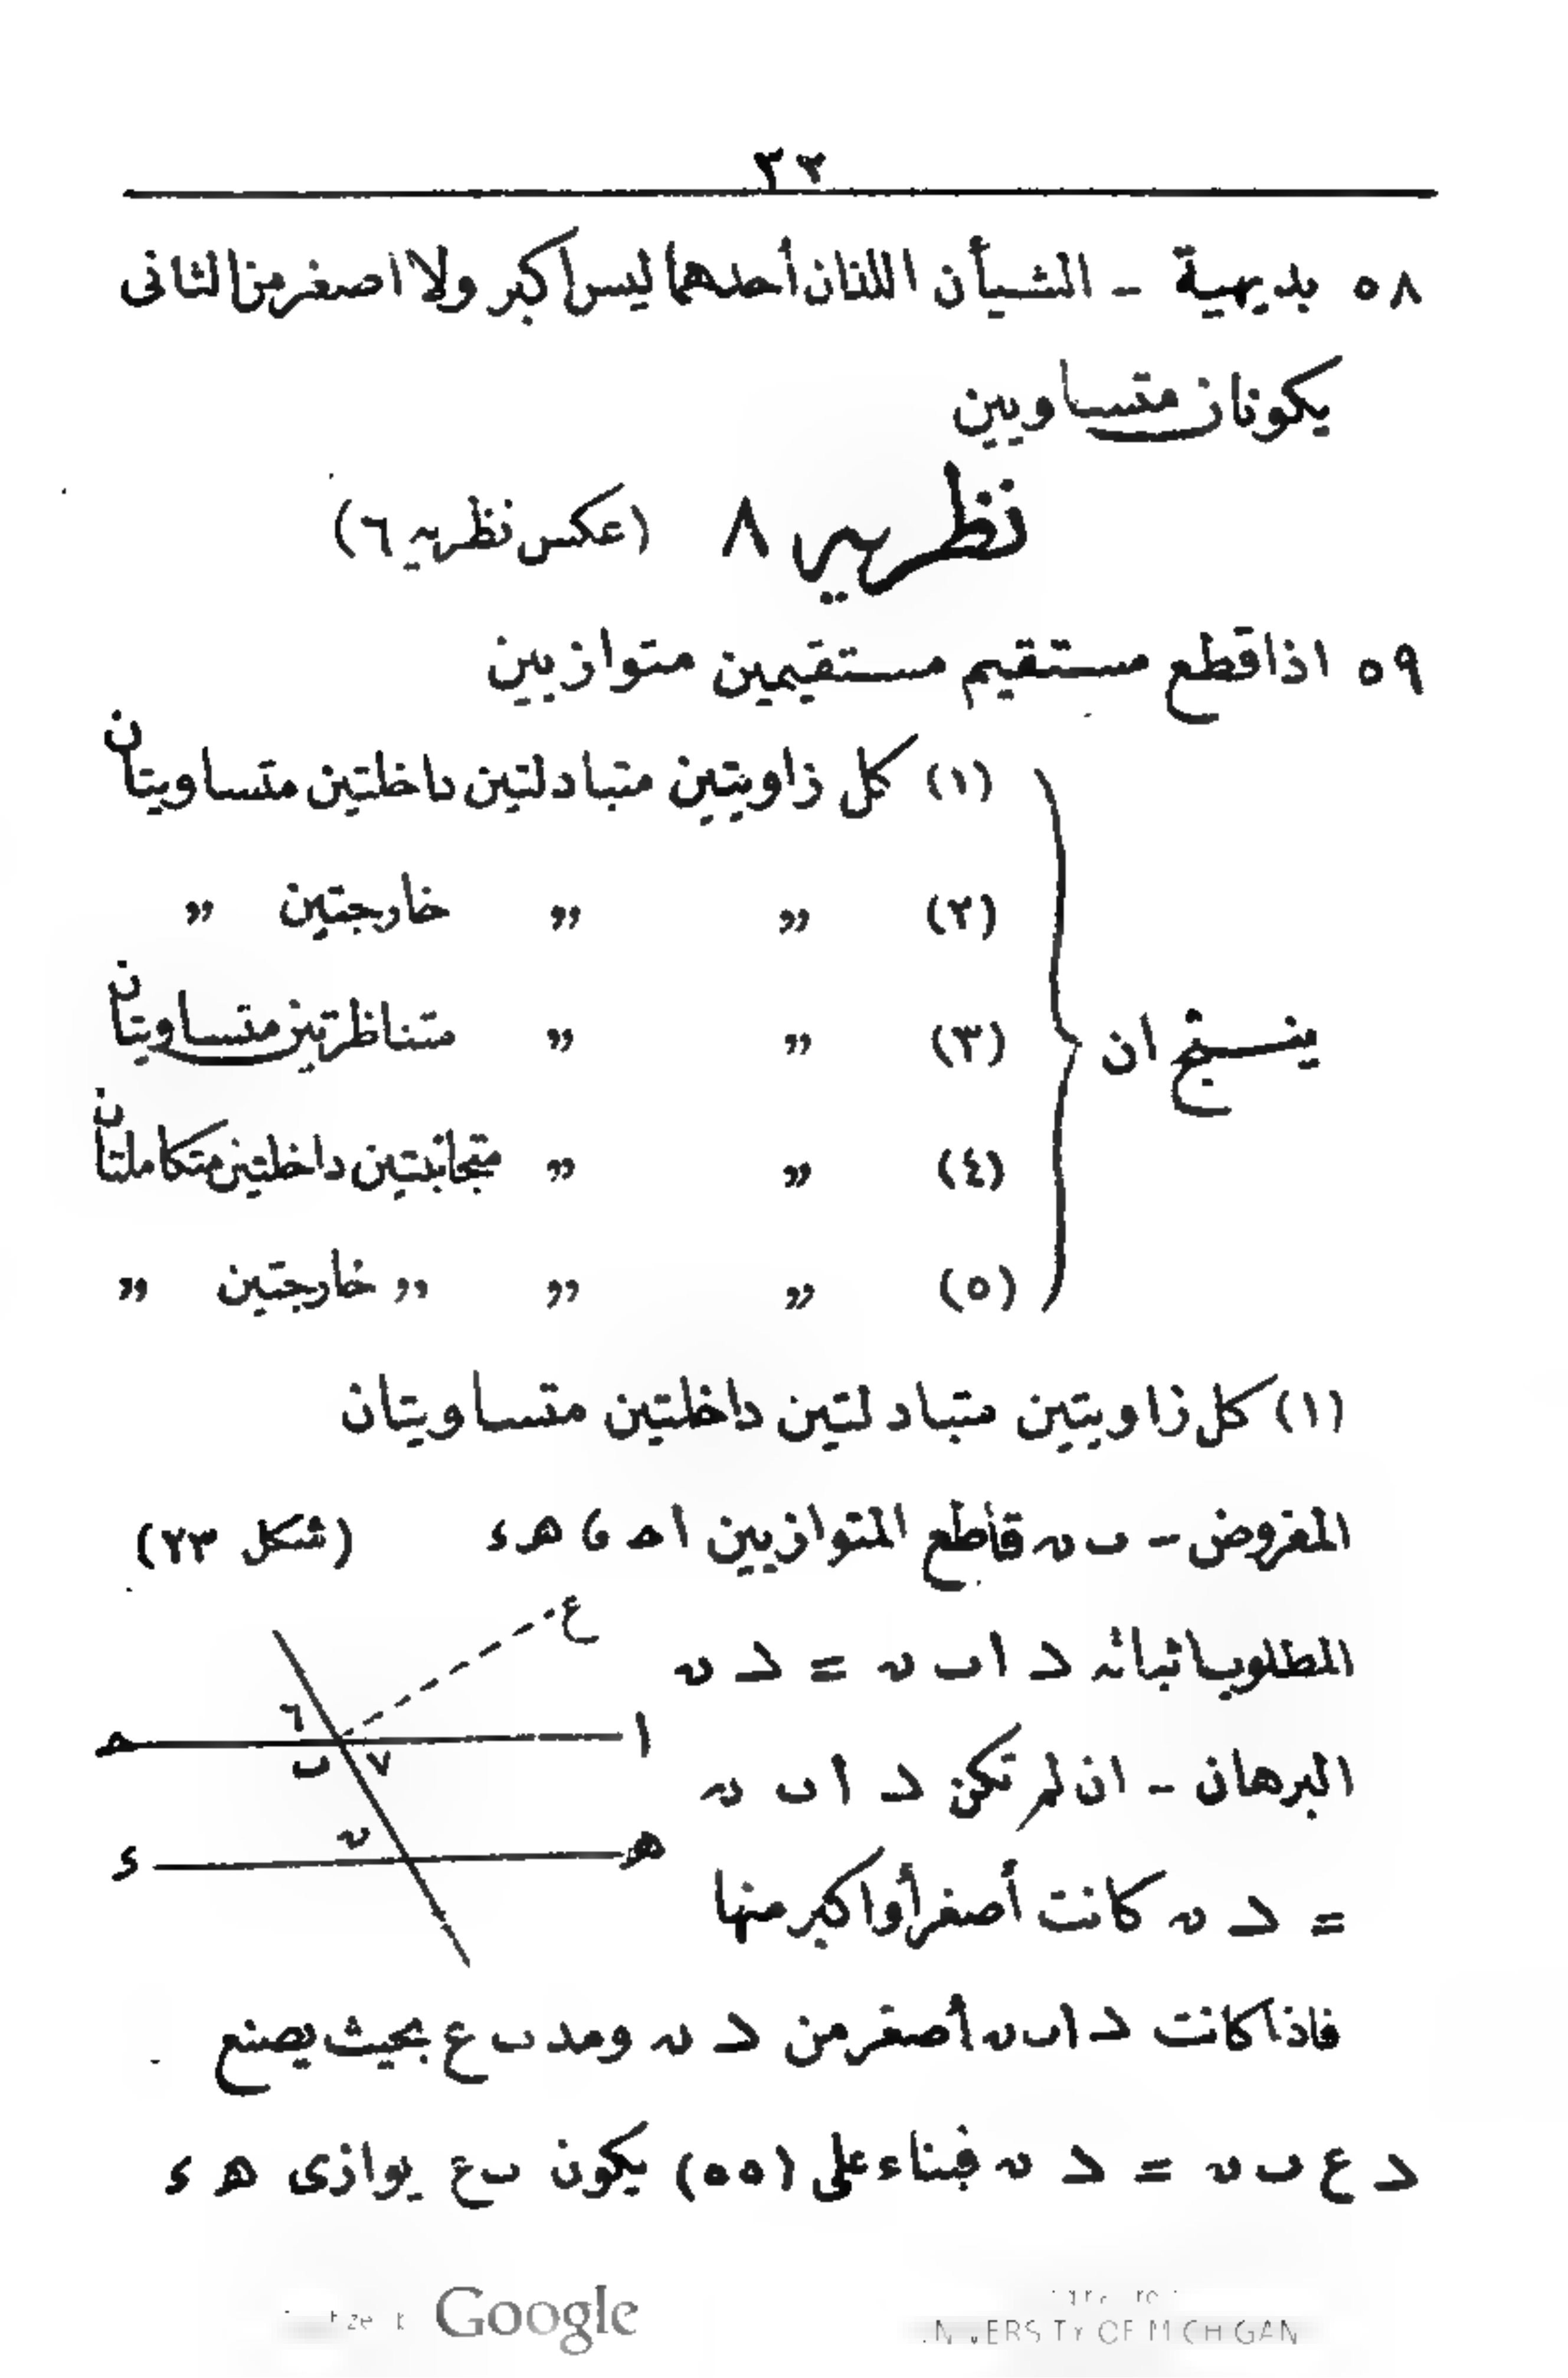 ٢٣
٥٨ بديهية - الشيأن اللذان أحدهما ليس اكبر ولا اصغر من الثانى
يكونان متساويين
نظريه ٨ (عكس نظريه ٦)
٥٩ اذا قطع مستقيم مستقيمين متوازيين
(١) كل زاويتين متبادلتين داخلتين متساويتان
(٢) ,, ,, خارجتين ,,
ينتج ان (٣) ,, ,, متناظرتين متساويتان
(٤) ,, ,, متجانبتين داخلتين متكاملتان
(٥) ,, ,, ,, خارجتين ,,
(١) كل زاويتين متبادلتين داخلتين متساويتان
المفروض - ب ن قاطع المتوازيين ا ح و ه ء (شكل ٢٣)
ع
المطلوب اثباته د ا ب ن = د ن
٦
ح ا
ب ٧
البرهان - ان لم تكن د ا ب ن
ن
ء ه
= د ن كانت أصغر أو اكبر منها
فاذا كانت د ا ب ن أصغر من د ن ومد ب ع بحيث يصنع
د ع ب ن = د ن فبناء على (٥٥) يكون ب ع يوازى ه ء
Google
UNIVERSITY OF MICHIGAN